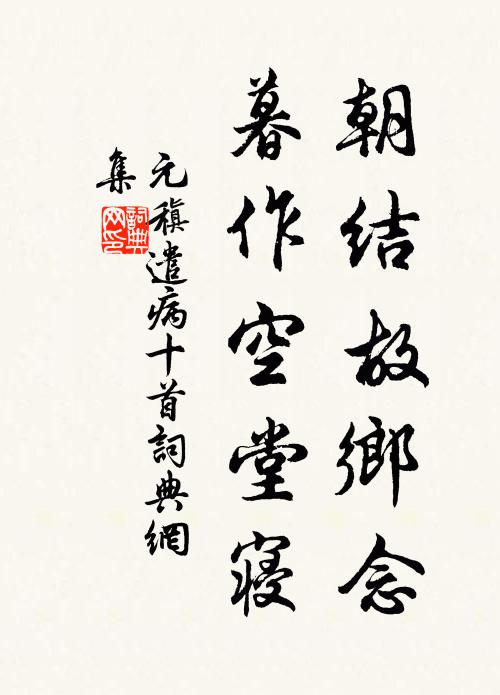 朝結故鄉念
暮作空堂寢
元稹遣病十首詞典網
集
詞典网印